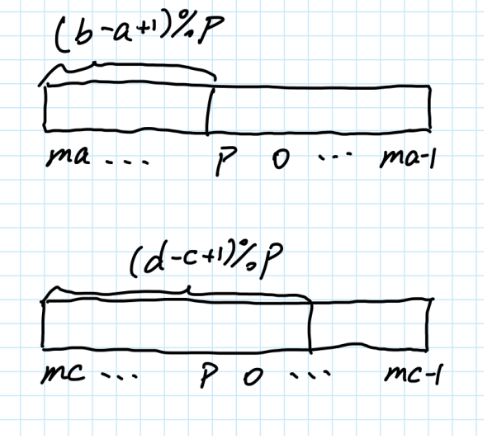 (b-a+1)%P
ma ... P 0 ... ma-1
(d-c+1)%P
mc ... P 0 ... mc-1